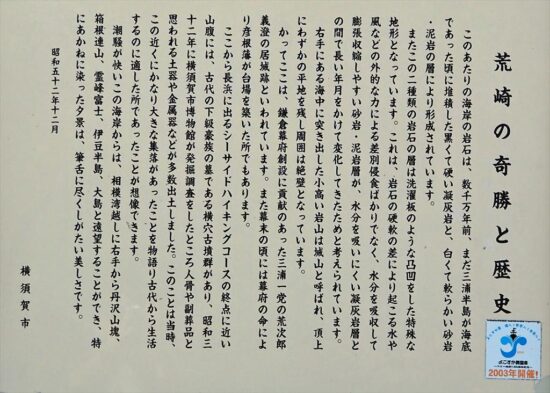 荒崎の奇勝と歴史
このあたりの海岸の岩石は、数千万年前、まだ三浦半島が海底
であった頃に堆積した黒くて硬い凝灰岩と、白くて軟らかい砂岩
・泥岩の層により形成されています。
またこの二種類の岩石の層は洗濯板のような凸凹をした特殊な
地形となっています。これは、岩石の硬軟の差により起こる水や
風などの外的な力による差別侵食ばかりでなく、水分を吸収して
膨張収縮しやすい砂岩・泥岩層が、水分を吸いにくい凝灰岩層と
の間で長い年月をかけて変化してきたためと考えられています。
右手にある海中に突き出した小高い岩山は城山と呼ばれ、頂上
にわずかの平地を残し周囲は絶壁となっています。
かってここは、鎌倉幕府創設に貢献のあった三浦一党の荒次郎
義澄の居城跡といわれています。また幕末の頃には幕府の命によ
り彦根藩が台場を築いた所でもあります。
ここから長浜に出るシーサイドハイキングコースの終点に近い
山腹には、古代の下級豪族の墓である横穴古墳群があり、昭和三
十二年に横須賀市博物館が発掘調査をしたところ人骨や副葬品と
思われる土器や金属器などが多数出土しました。このことは当時、
この近くにかなり大きな集落があったことを物語り古代から生活
するのに適した所であったことが想像できます。
潮騒が快いこの海岸からは、相模湾越しに右手から丹沢山塊、
箱根連山、霊峰富士、伊豆半島、大島と遠望することができ、特
にあかねに染った夕景は、筆舌に尽くしがたい美しさです。
昭和五十二年十二月
横須賀市
2003年開催!